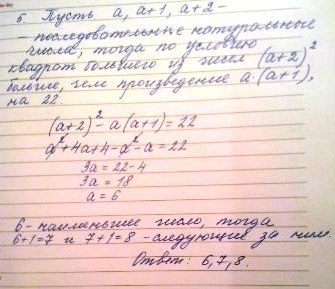 5. Пусть a, a+1, a+2 -
- последовательные натуральные
числа, тогда по условию
квадрат большего из чисел (a+2)²
больше, чем произведение a·(a+1),
на 22.
(a+2)² - a(a+1) = 22
a² + 4a + 4 - a² - a = 22
3a = 22 - 4
3a = 18
a = 6
6 - наименьшее число, тогда
6+1=7 и 7+1=8 - следующие за ним.
Ответ: 6, 7, 8.